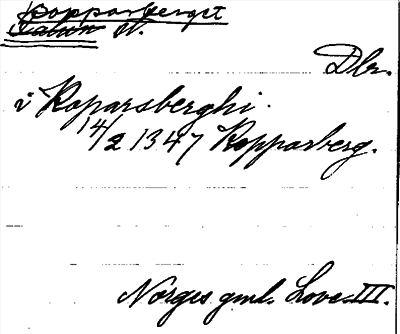 Kopparberget
Falun st.
Dlr.
i Koparsberghi.
14/2 1347 Kopparberg.
Norges gml. Love III.